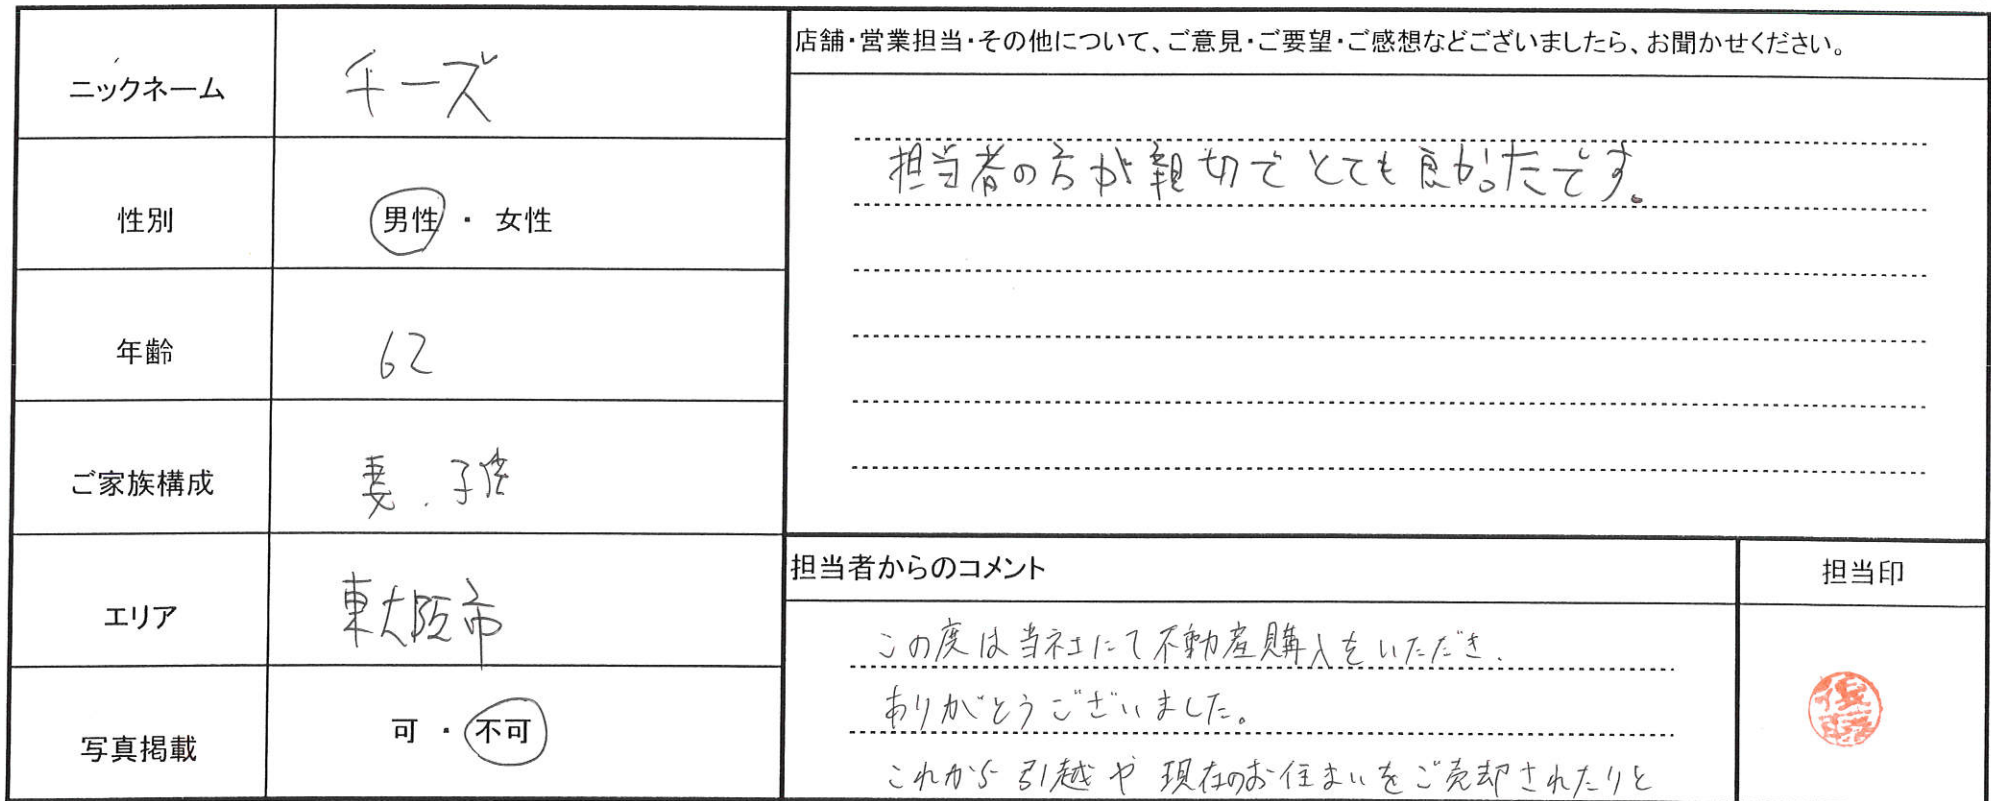 ニックネーム
チーズ
性別
男性・女性
年齢
62
ご家族構成
妻、子供
エリア
東大阪市
写真掲載
可・不可
店舗・営業担当・その他について、ご意見・ご要望・ご感想などございましたら、お聞かせください。
担当者の方が親切でとても良かったです。
担当者からのコメント
この度は当社にて不動産購入をいただき、
ありがとうございました。
これから引越や現在のお住まいをご売却されたりと
担当印
後藤